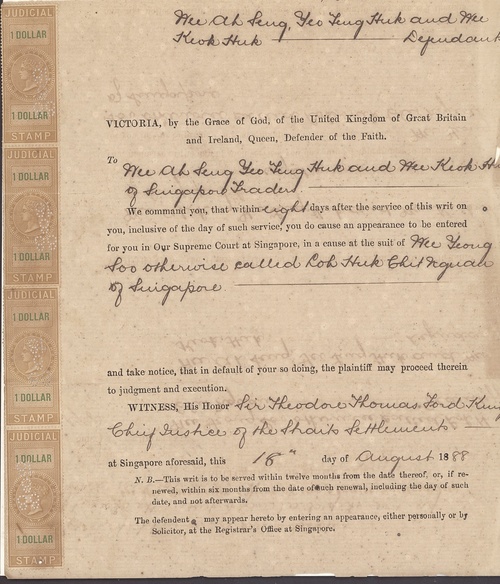 JUDICIAL
1 DOLLAR
1 DOLLAR
STAMP
JUDICIAL
1 DOLLAR
1 DOLLAR
STAMP
JUDICIAL
1 DOLLAR
1 DOLLAR
STAMP
JUDICIAL
1 DOLLAR
1 DOLLAR
STAMP
Wee Ah Seng, Yeo Teng Huk and Wee
Keok Huk Defendant
VICTORIA, by the Grace of God, of the United Kingdom of Great Britain
and Ireland, Queen, Defender of the Faith.
To
Wee Ah Seng Yeo Teng Huk and Wee Keok H
of Singapore Traders.
We command you, that within eight days after the service of this writ on
you, inclusive of the day of such service, you do cause an appearance to be entered
for you in Our Supreme Court at Singapore, in a cause at the suit of Wee Yeong
Soo otherwise called Loh Huk Chit Nguan
of Singapore
and take notice, that in default of your so doing, the plaintiff may proceed therein
to judgment and execution.
WITNESS, His Honor Sir Theodore Thomas Ford Kni
Chief Justice of the Straits Settlements
at Singapore aforesaid, this 18th day of August 1888
N. B.—This writ is to be served within twelve months from the date thereof, or, if re-
newed, within six months from the date of such renewal, including the day of such
date, and not afterwards.
The defendent s may appear hereto by entering an appearance, either personally or by
Solicitor, at the Registrar's Office at Singapore.